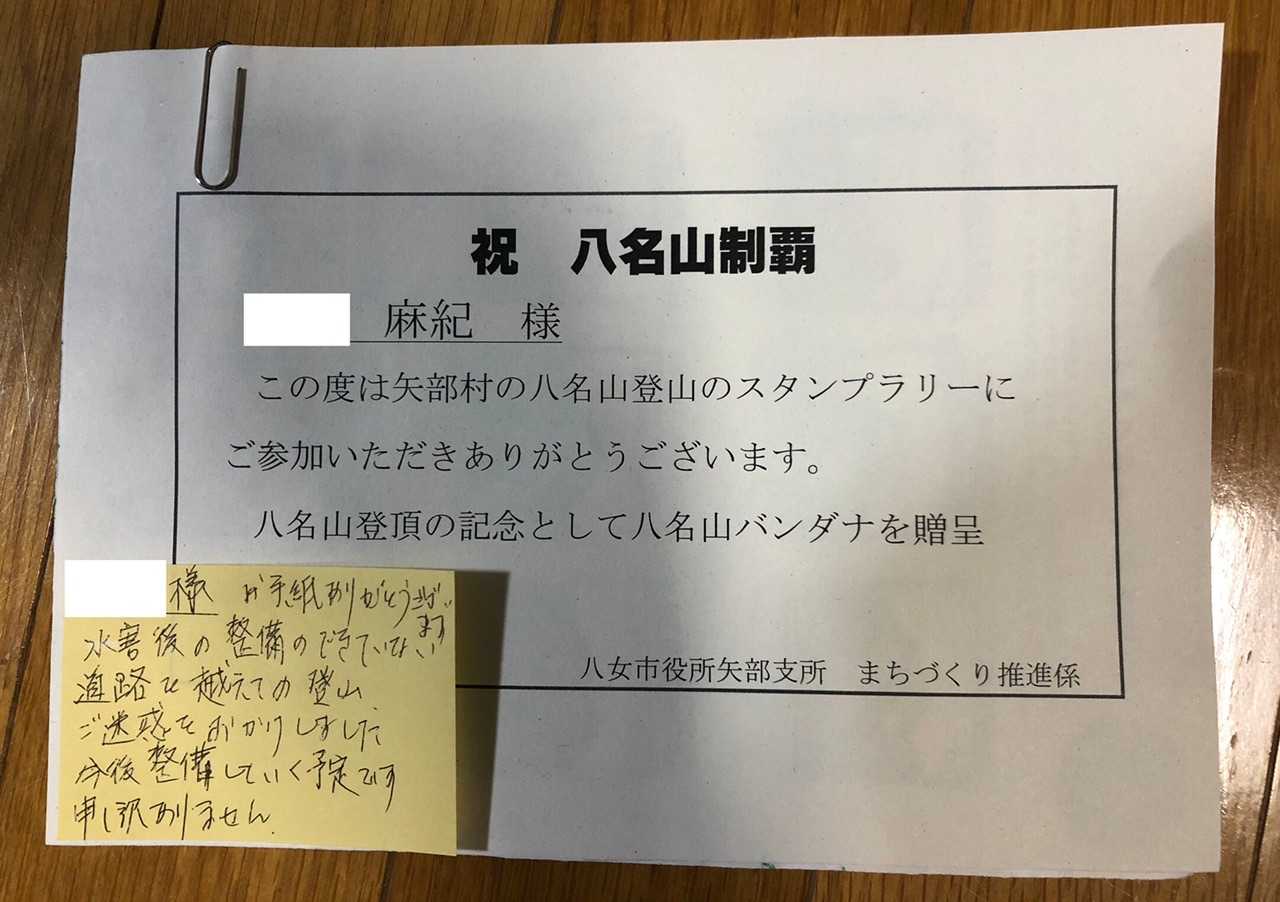 祝　八名山制覇
麻紀　様
この度は矢部村の八名山登山のスタンプラリーに
ご参加いただきありがとうございます。
八名山登頂の記念として八名山バンダナを贈呈
八女市役所矢部支所　まちづくり推進係
様 お手紙ありがとうござい
ます
水害後の整備のできていない
道路を越えての登山
ご迷惑をおかけしました
今後整備していく予定です
申し訳ありません